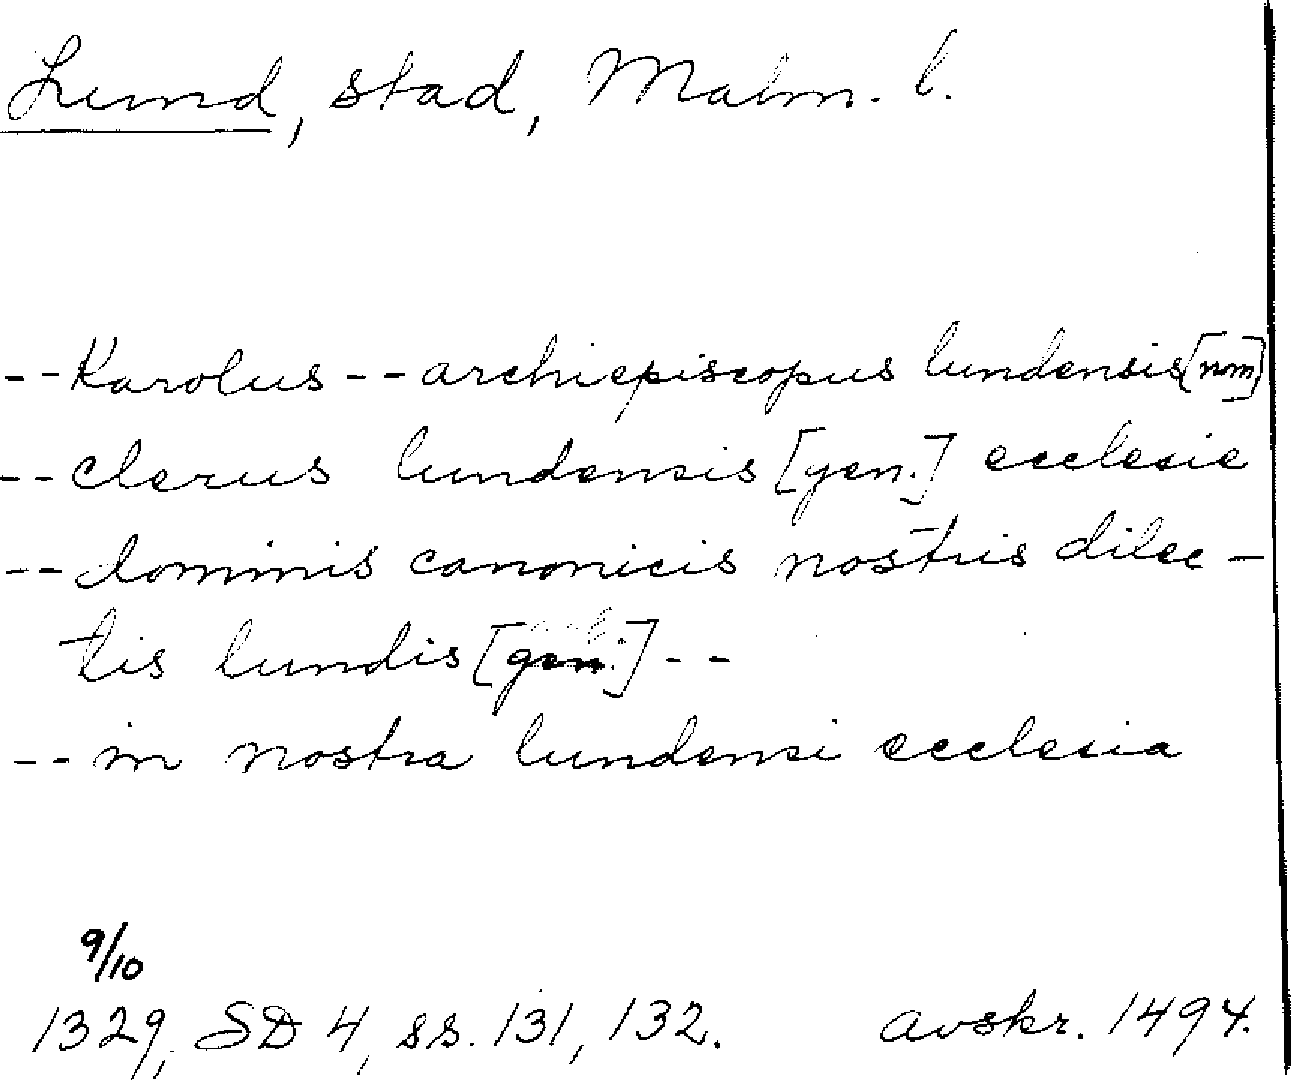 Lund, stad, Malm. l.
--Karolus--archiepiscopus lundensis[nom]
--clerus lundensis [gen.] ecclesie
--dominis canonicis nostris dilec-
tis lundis [gen.]--
--in nostra lundensi ecclesia
9/10
1329, SD 4, ss. 131, 132. avskr. 1494.